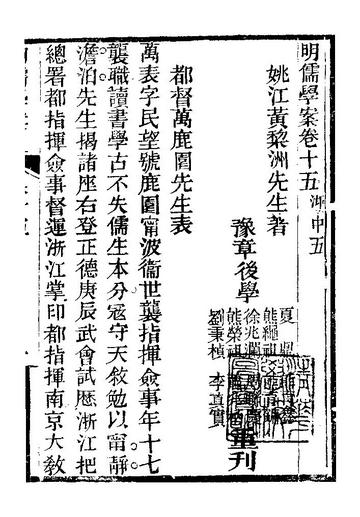 明儒學案卷十五 浙中五
姚江黃黎洲先生著
豫章後學
夏鼎
熊繩祖
徐兆瀾
熊榮祖
劉秉楨 李真實
重刊
都督萬鹿園先生表
萬表字民望號鹿園甯波衞世襲指揮僉事年十七
襲職讀書學古不失儒生本分寇守天敘勉以甯靜
澹泊先生揭諸座右登正德庚辰武會試歷浙江把
總署都指揮僉事督運浙江掌印都指揮南京大教